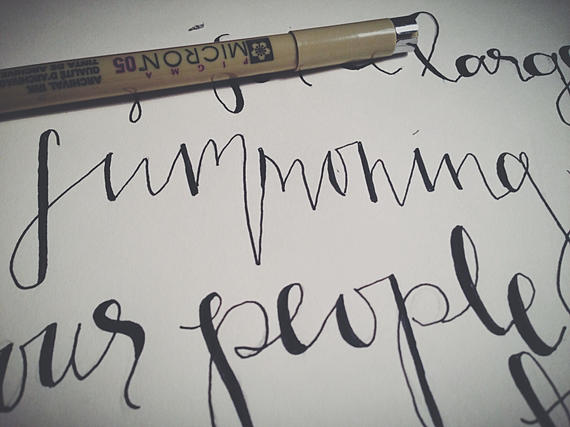 PIGMA
MICRON 05
ARCHIVAL INK
QUALITÉ D'ARCHIVE
TINTA DE ARCHIV
larg
summoning
our people